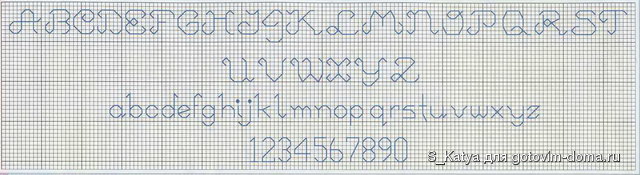 ABCDEFGHIJKLMNOPQRST
UVWXYZ
abcdefghijklmnopqrstuvwxyz
1234567890
S_Katya для gotovim-doma.ru